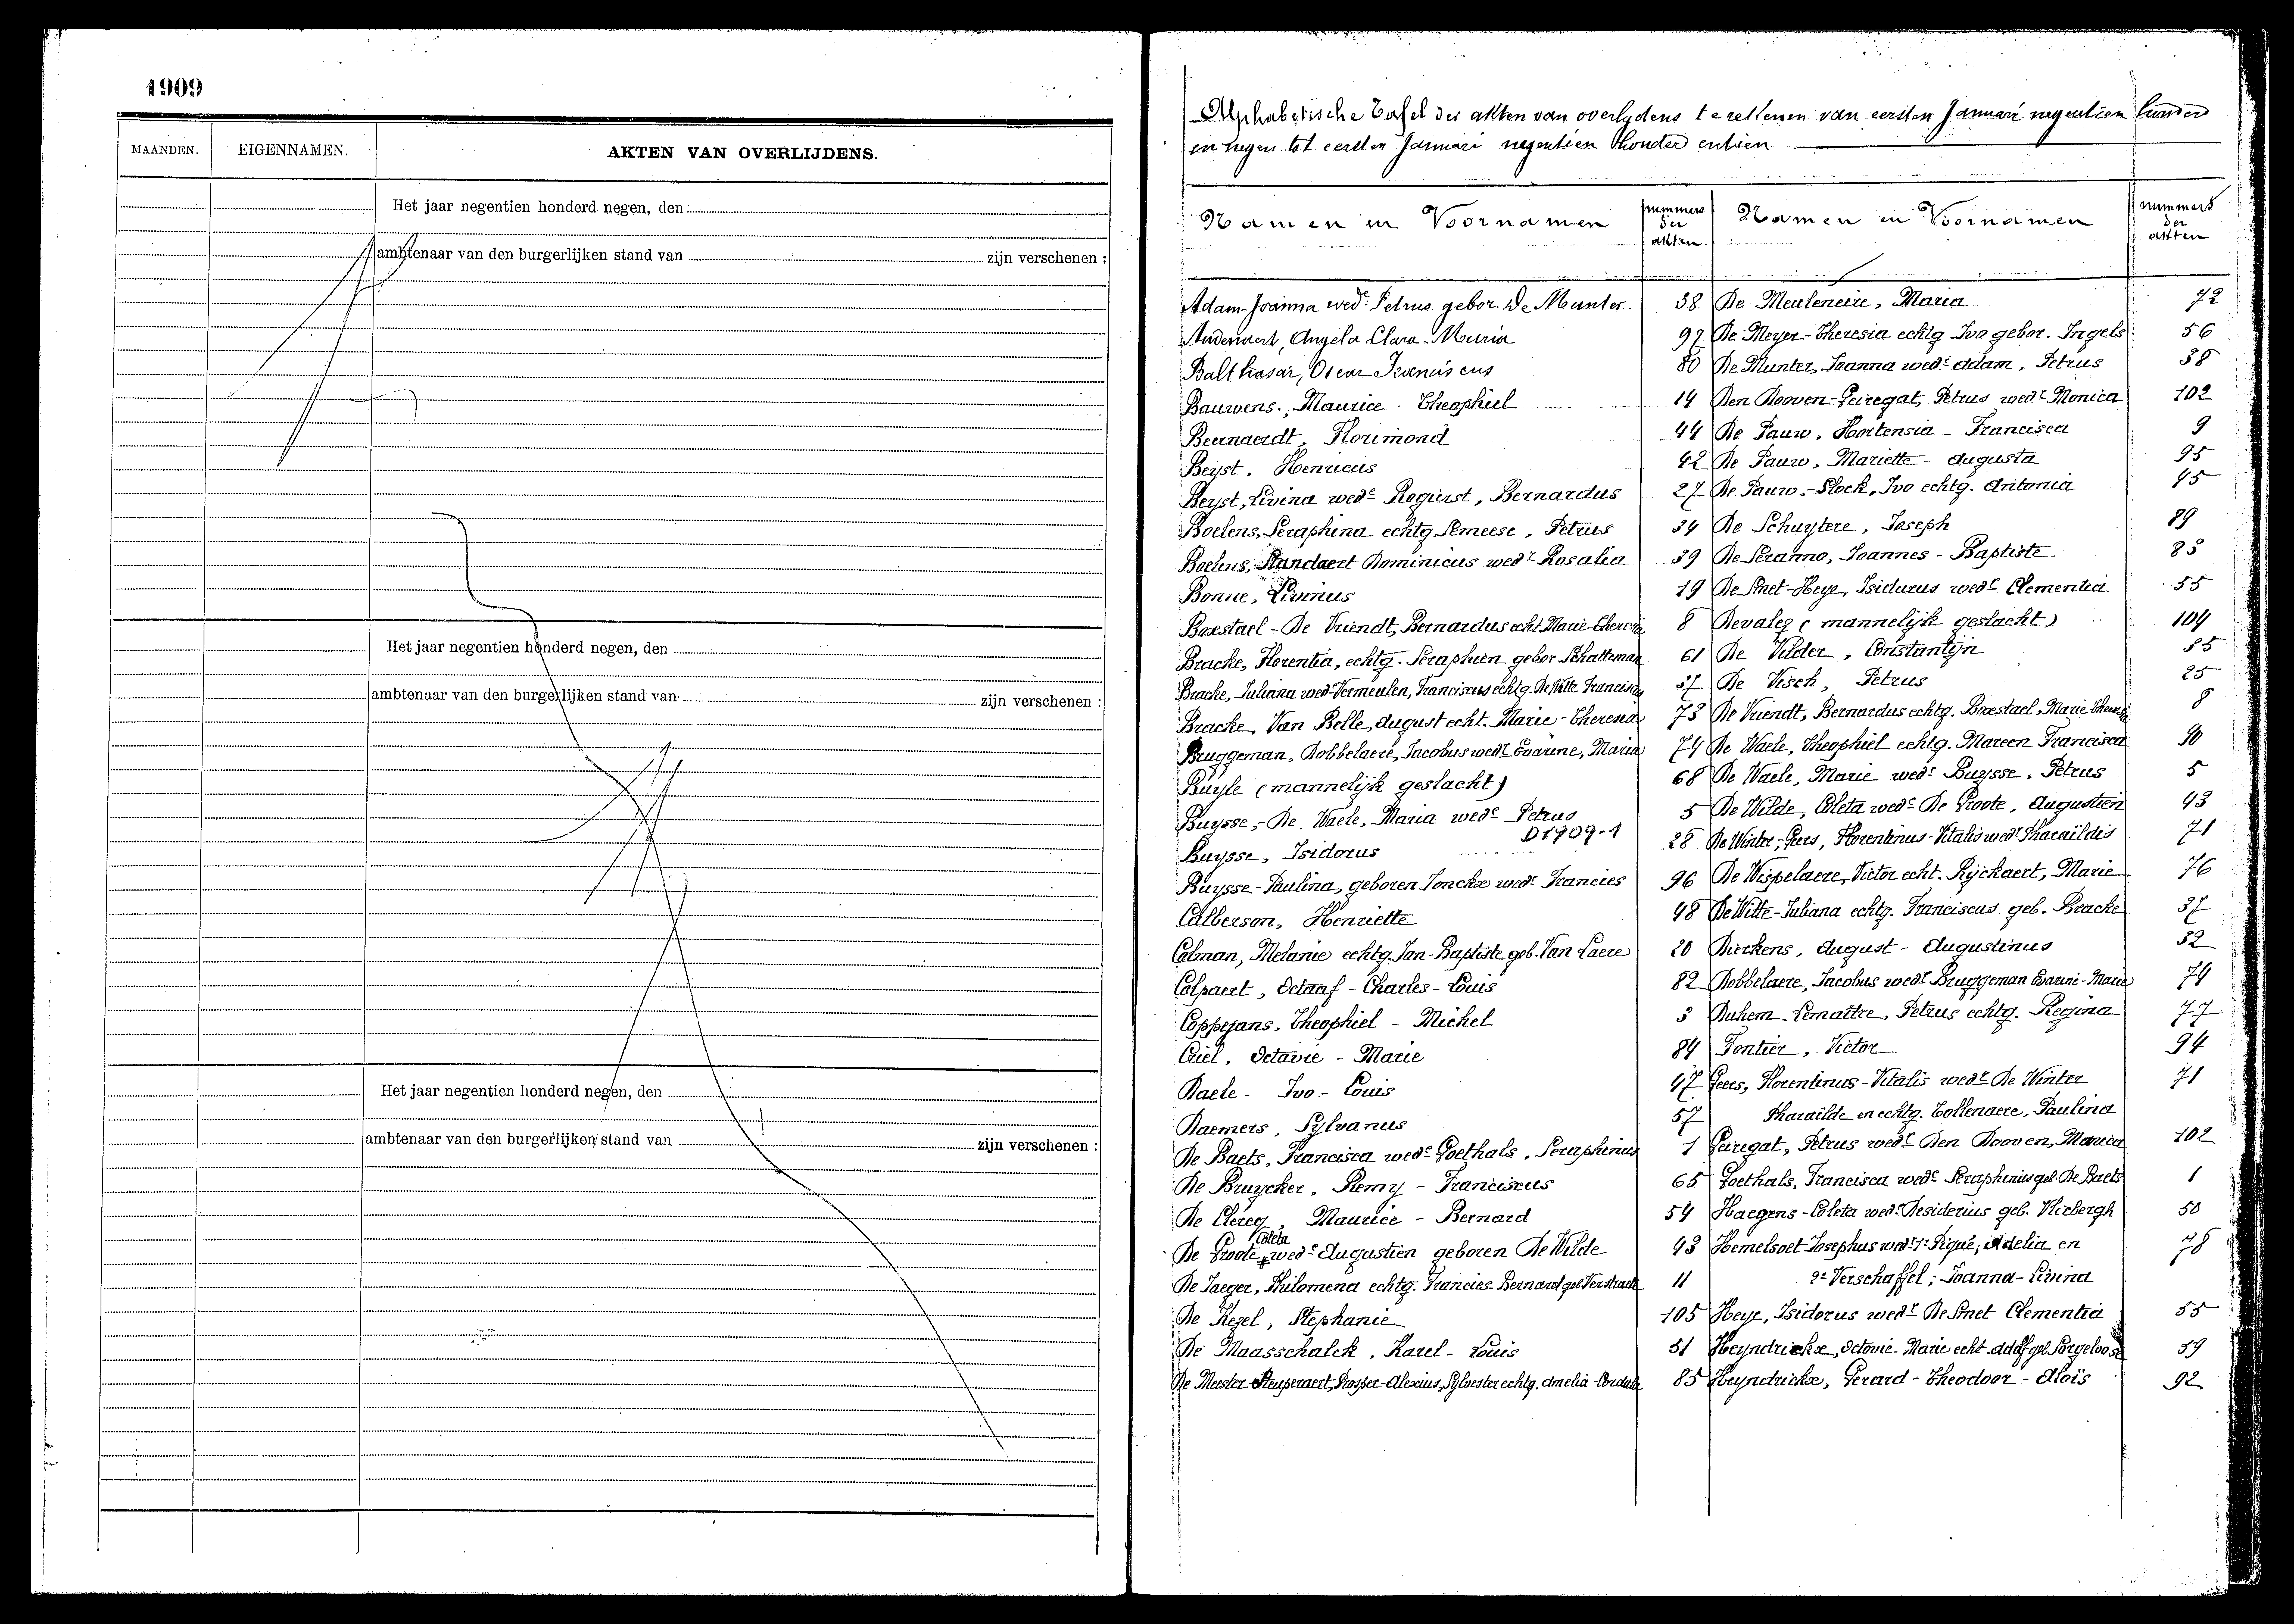 1909
MAANDEN.
EIGENNAMEN.
AKTEN VAN OVERLIJDENS.
Het jaar negentien honderd negen, den
ambtenaar van den burgerlijken stand van zijn verschenen :
Het jaar negentien honderd negen, den
ambtenaar van den burgerlijken stand van zijn verschenen :
Het jaar negentien honderd negen, den
ambtenaar van den burgerlijken stand van zijn verschenen :
Alphabetische Tafel der akten van overlydens te rellenen van eersten Januari negentien hunderd
en negen tot eersten Januari negentien honderd entien
Namen en Voornamen
nummers der akten
Namen en Voornamen
nummers der akten
Adam-Joanna wede Petrus gebor. De Munter 38
Audenaert, Angela Clara-Maria 97
Balthasar, Oscar-Franciscus 80
Bauwens, Maurice-Theophiel 14
Beernaerdt, Florimond 44
Beyst, Henricus 42
Beyst, Livina wede Rogierst, Bernardus 27
Boelens, Seraphina echtg Lemeese, Petrus 34
Boelens, Standaert Dominicus wedr Rosalia 39
Bonne, Livinus 19
Boxstael-De Vriendt, Bernardus echt Marie-Theresia 8
Bracke, Florentia, echtg. Seraphien gebor Schatteman 61
Bracke, Juliana wed-Vermeulen, Franciscus echtg. De Witte Franciscus 37
Bracke, Van Belle, August echt. Marie-Theresia 73
Bruggeman, Dobbelaere, Jacobus wedr Evarine, Maria 74
Buyle (mannelijk geslacht) 68
Buysse,-De Waele, Maria wede Petrus 5
D1909-1
Buysse, Isidorus 28
Buysse-Paulina, geboren Jonckx wede Francies 96
Calberson, Henriette 48
Colman, Melanie echtg. Jan-Baptiste geb. Van Laere 20
Colpaert, Octaaf-Charles-Louis 82
Coppejans, Theophiel-Michel 3
Criel, Octavie-Marie 84
Daele-Ivo-Louis 47
Daemers, Sylvanus 57
De Baets, Francisca wede Goethals, Seraphinus 1
De Bruycker, Remy-Franciscus 65
De Clercq, Maurice-Bernard 54
De Groote, Coleta wede Augustien geboren De Wilde 43
De Jaeger, Philomena echtg. Francies-Bernard geb Verstraete 11
De Kezel, Stephanie 105
De Maasschalck, Karel-Louis 51
De Meester Steuperaert, Prosper-Alexius, Sylvester echtg. Amelia-Cordula 85
De Meuleneire, Maria 72
De Meyer-Theresia echtg Ivo gebor. Ingels 56
De Munter, Joanna wede Adam, Petrus 38
Den Dooven-Geiregat, Petrus wedr Monica 102
De Pauw, Hortensia-Francisca 9
De Pauw, Mariette-Augusta 95
De Pauw-Stock, Ivo echtg. Antonia 45
De Schuytere, Joseph 89
De Seranno, Joannes-Baptiste 83
De Smet-Heye, Isidurus wedr Clementia 55
Devalez (mannelijk geslacht) 104
De Vilder, Constantijn 85
De Visch, Petrus 25
De Vriendt, Bernardus echtg. Boxstael, Marie Theresia 8
De Waele, Theophiel echtg. Mareen Francisca 90
De Waele, Marie wede Buysse, Petrus 5
De Wilde, Coleta wede De Groote, Augustien 43
De Winter, Geers, Florentinus-Vitalis wedr Tharaildis 71
De Wispelaere, Victor echt. Rijckaert, Marie 76
De Witte-Juliana echtg. Franciscus geb. Bracke 37
Dierkens, August-Augustinus 52
Dobbelaere, Jacobus wedr Bruggeman Evarine-Maria 74
Duhem-Lemaître, Petrus echtg. Regina 77
Fontier, Victor 94
Geers, Florentinus-Vitalis wedr De Winter 71
Tharailde en echtg. Tollenaere, Paulina
Geiregat, Petrus wedr Den Dooven, Monica 102
Goethals, Francisca wede Seraphinus geb. De Baets 1
Haegens-Coleta wede Desiderius geb. Vliebergh 50
Hemelsoet-Josephus wedr 1e Piqué, Adelia en 78
2e Verschaffel; Joanna-Livina
Heye, Isidorus wedr De Smet Clementia 55
Heyndrickx, Octavie-Marie echt. Adolf geb Sorgeloose 59
Heyndrickx, Gerard-Theodoor-Aloïs 92